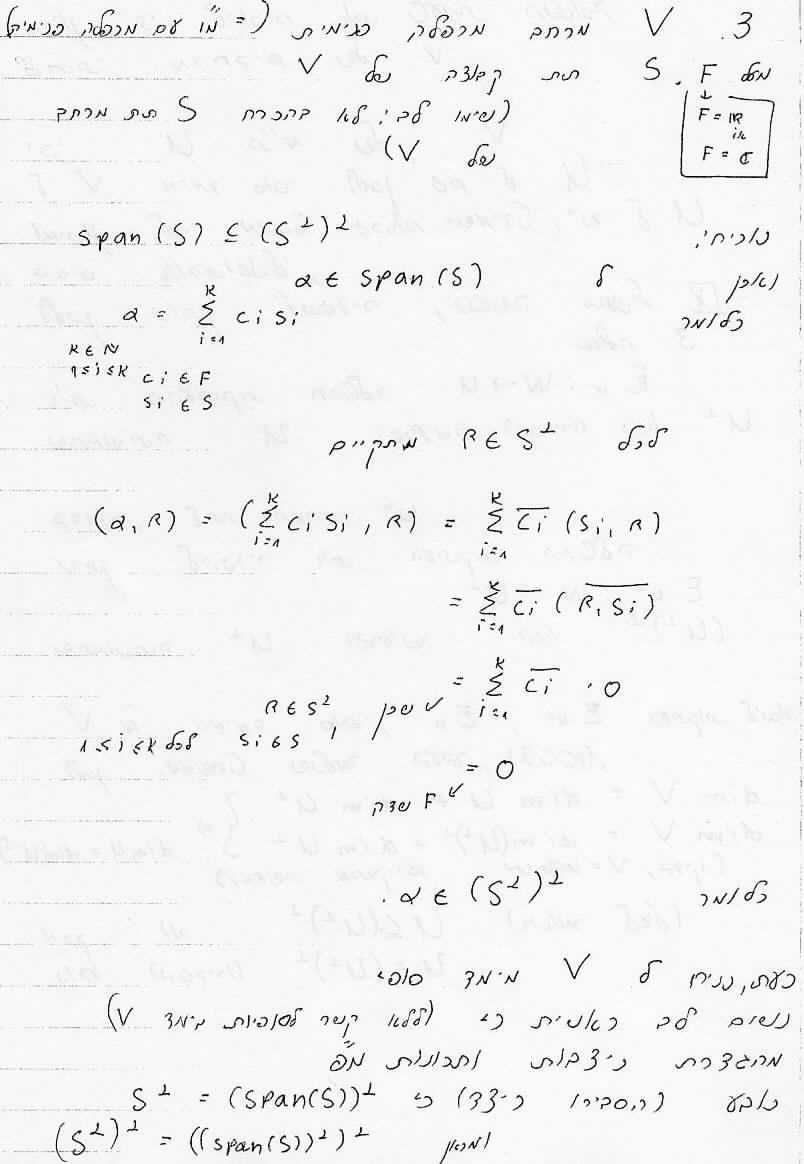 3. V מרחב מכפלה פנימית (= מ"ו עם מכפלה פנימית)
מעל F. S תת קבוצה של V
(נשימו לב: לא בהכרח S תת מרחב
של V)
↓
F = ℝ
או
F = ℂ
נוכיח: span(S) ⊆ (S^⊥)^⊥
ואכן ל α ∈ span(S)
כלומר α = Σ_{i=1}^{k} c_i s_i
k ∈ ℕ
1≤i≤k c_i ∈ F
s_i ∈ S
לכל β ∈ S^⊥ מתקיים
(α, β) = (Σ_{i=1}^{k} c_i s_i, β) = Σ_{i=1}^{k} \overline{c_i} (s_i, β)
= Σ_{i=1}^{k} \overline{c_i} \overline{(β, s_i)}
= Σ_{i=1}^{k} \overline{c_i} · 0
↙ שכן, β ∈ S^⊥
s_i ∈ S לכל 1≤i≤k
= 0
↙ F שדה
כלומר α ∈ (S^⊥)^⊥.
כעת, נניח ל V מימד סופי
נשים לב ראשית כי (ללא קשר לסופיות מימד V)
מהגדרת ניצבות ותכונות מ"פ
נובע (הסבירו כיצד) כי S^⊥ = (span(S))^⊥
ומכאן (S^⊥)^⊥ = ((span(S))^⊥)^⊥